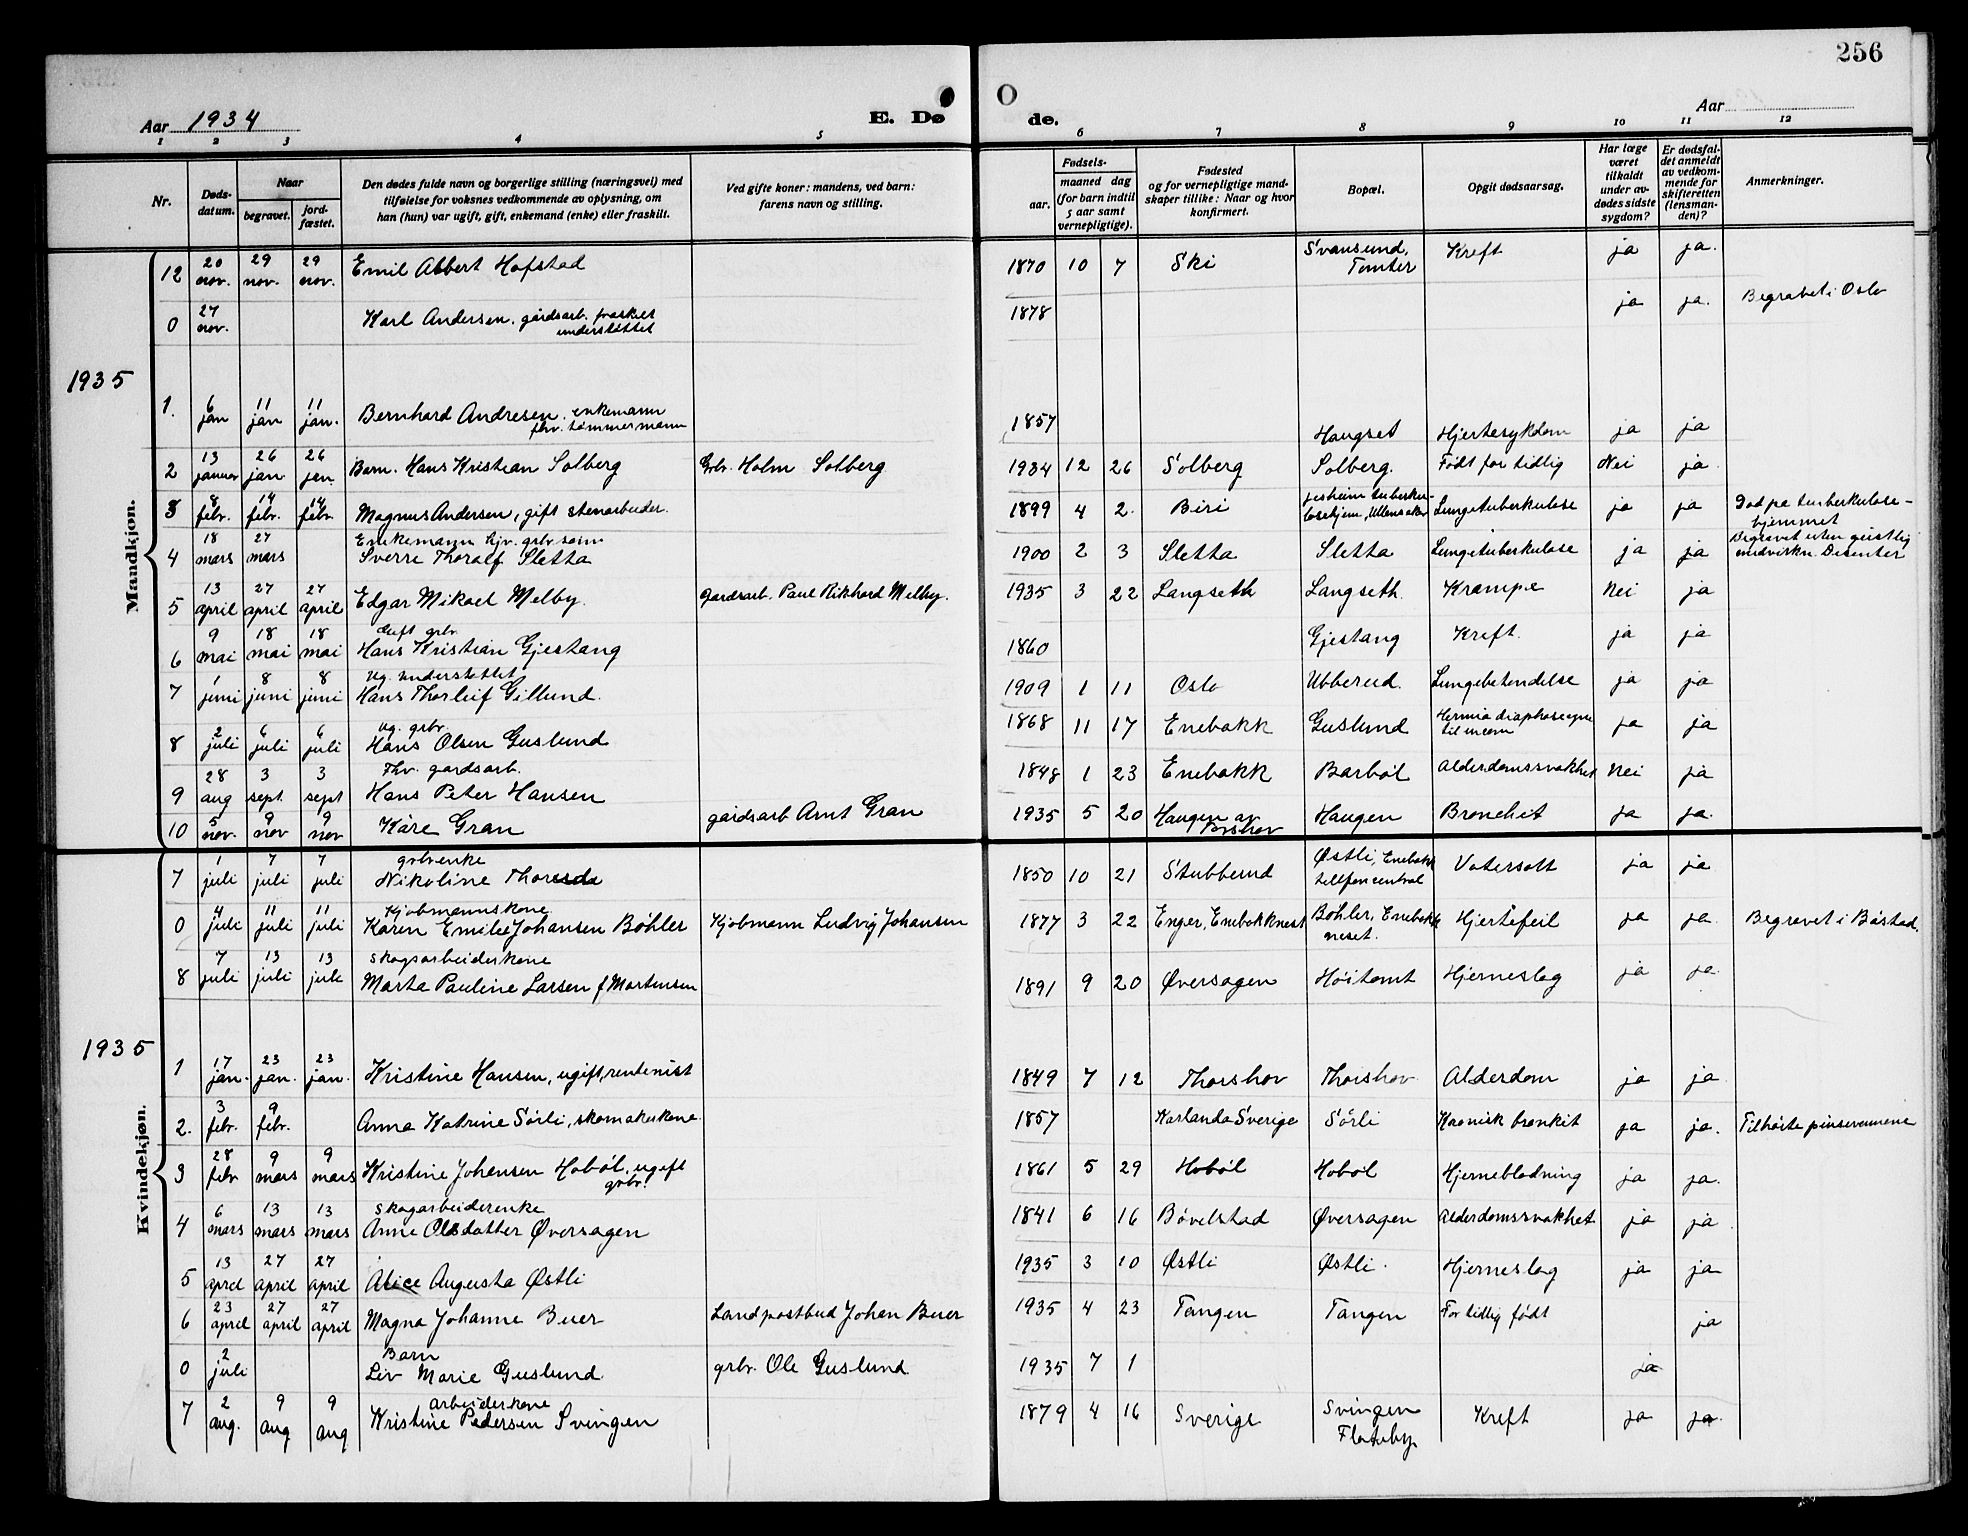 256
Aar 1934 E. Dø de. Aar
1 2 3 4 5 6 7 8 9 10 11 12
Nr.
Døds-
datum.
Naar
begravet.
jord-
fæstet.
Den dødes fulde navn og borgerlige stilling (næringsvei) med
tilføielse for voksnes vedkommende av oplysning, om
han (hun) var ugift, gift, enkemand (enke) eller fraskilt.
Ved gifte koner: mandens, ved barn:
farens navn og stilling.
Fødsels-
aar.
maaned dag
(for barn indtil
5 aar samt
vernepligtige).
Fødested
og for vernepligtige mand-
skaper tillike: Naar og hvor
konfirmert.
Bopæl.
Opgit dødsaarsag.
Har læge
været
tilkaldt
under av-
dødes sidste
sygdom?
Er dødsfal-
det anmeldt
av vedkom-
mende for
skifteretten
(lensman-
den)?
Anmerkninger.
Mandkjøn.
12 20 nov. 29 nov. 29 nov. Emil Albert Hofstad 1870 10 7 Ski Svansund, Tomter Kreft ja ja.
0 27 nov. Karl Andersen, gårdsarb. fraskilt understøttet 1878 ja ja. Begravet i Oslo
1935
1. 6 jan 11 jan 11 jan. Bernhard Andresen. enkemann fhv. tømmermann 1857 Haugset Hjertesykdom ja ja
2 13 januar 26 jan 26 jan Barn. Hans Kristian Solberg Grbr. Holm Solberg 1934 12 26 Solberg Solberg. Født for tidlig Nei ja
3 8 febr. 14 febr. 14 febr Magnus Andersen, gift stenarbeider. 1899 4 2. Biri Jesheim tuberku- losehjem, Ullensaker Lungetuberkulose ja ja Død på tuberkulose- hjemmet
4 18 mars 27 mars Enkemann hjv. grbr sønn Sverre Thoralf Sletta 1900 2 3 Sletta Sletta Lungetuberkulose ja ja Begravet uten geistlig medvirkn. Disenter
5 13 april 27 april 27 april Edgar Mikael Melby. gardsarb. Paul Rikhard Melby. 1935 3 22 Langseth Langseth. Krampe Nei ja
6 9 mai 18 mai 18 mai Gift grbr. Hans Kristian Gjestang 1860 Gjestang Kreft. ja ja
7 1 juni 8 juni 8 juni Ug. understøttet Hans Thorleif Gillund. 1909 1 11 Oslo Ubberud. Lungebetendelse ja ja
8 2 juli 6 juli 6 juli Ug. grbr Hans Olsen Guslund 1868 11 17 Enebakk Guslund Hernia ja ja
9 28 aug 3 sept. 3 sept Fhv. gardsarb. Hans Peter Hansen 1848 1 23 Enebakk Barbøl Alderdomssvakhet Nei ja
10 5 nov. 9 nov 9 nov Kåre Gran gårdsarb Arnt Gran 1935 5 20 Haugen av Haugen Bronchit ja ja.
Kvindekjøn.
7 1 juli 7 juli 7 juli grbrenke Nikoline 1850 10 21 Stubberud Østli, Enebakk tellfoncentral Vatersott ja ja
0 4 juli 11 juli 11 juli Kjøbmannskone Karen Emilie Johansen Bøhler Kjøbmann Ludvig Johansen 1877 3 22 Enger, Enebakknest Bøhler, Enebakk neset. Hjertefeil ja ja Begravet i Båstad.
8 7 juli 13 juli 13 juli skogsarbeiderkone Marta Pauline Larsen f Martinsen 1891 9 20 Øversagen Høitomt Hjerneslag ja ja
1935
1 17 jan. 23 jan. 23 jan. Kristine Hansen, ugift, rentenist 1849 7 12 Thorshov Thorshov Alderdom ja ja
2. 3 febr. 9 febr. Anna Katrine Sørli, skomakerkone. 1857 Karlanda Sverige Sørli Kronisk bronkit ja ja. Tilhørte pinsevennene
3 28 febr 9 mars 9 mars Kristine Johansen Hobøl, ugift grbr. 1861 5 29 Hobøl Hobøl Hjerneblødning ja ja.
4 6 mars 13 mars 13 mars skogarbeiderenke Anne Olsdatter Øversagen 1841 6 16 Bøvelstad Øversagen Alderdomssvakhet ja ja
5 13 april 27 april 27 april Alice Augusta Østli 1935 3 10 Østli Østli. Hjerneslag ja ja
6 23 april 27 april 27 april Magna Johanne Buer Landpostbud Johan Buer 1935 4 23 Tangen Tangen For tidlig født ja
0 2 juli Barn Liv Marie Guslund grbr. Ole Guslund 1935 7 1 ja
7 2 aug. 9 aug 9 aug arbeiderkone Kristine Pedersen Svingen 1879 4 16 Sverige Svingen Flateby Kreft ja ja.